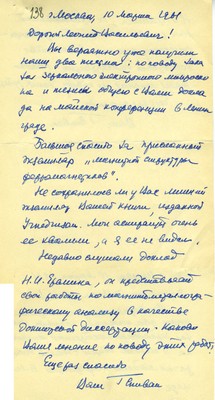 138 г. Москва, 10 марта 1961
Дорогой Леонтий Васильевич!
Вы вероятно уже получили
наши два письма: по поводу
зеркального электронного микроско
па и тезисы общего с Вами докла
да на майской конференции в Ленин
граде.
Большое спасибо за присланный
экземпляр „магнитной структуры
ферромагнетиков".
Не сохранился ли у Вас лишний
экземпляр Вашей книги, изданной
Учпедгизом. Мои аспиранты очень
ее хвалили, а я ее не видел.
Недавно слушали доклад
Н.И. Еремина, он представляет
свои работы по магнитной
фическому анализу в качестве
Докторской диссертации. Каково
Ваше мнение по поводу этих работ,
Еще раз спасибо
Ваш Г. Спивак